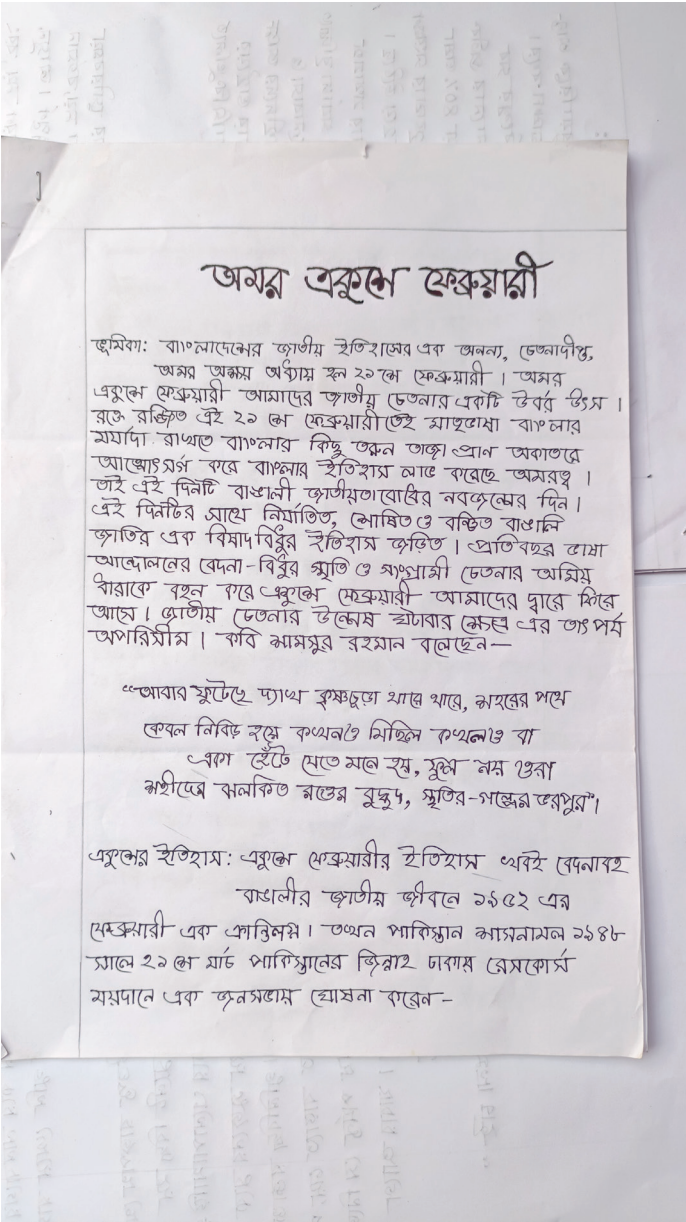 অমর একুশে ফেব্রুয়ারী
ভূমিকা: বাংলাদেশের জাতীয় ইতিহাসের এক অনন্য, চেতনাদীপ্ত,
অমর অক্ষয় অধ্যায় হল ২১শে ফেব্রুয়ারী । অমর
একুশে ফেব্রুয়ারী আমাদের জাতীয় চেতনার একটি উর্বর উৎস ।
রক্তে রঞ্জিত এই ২১ শে ফেব্রুয়ারীতেই মাতৃভাষা বাংলার
মর্যাদা রাখতে বাংলার কিছু তরুন তাজা প্রান অকাতরে
আত্মোৎসর্গ করে বাংলার ইতিহাস লাভ করেছে অমরত্ব ।
তাই এই দিনটি বাঙালী জাতীয়তাবোধের নবজন্মের দিন ।
এই দিনটির সাথে নির্যাতিত, শোষিত ও বঞ্চিত বাঙালি
জাতির এক বিষাদবিধুর ইতিহাস জড়িত । প্রতিবছর ভাষা
আন্দোলনের বেদনা-বিধুর স্মৃতি ও সংগ্রামী চেতনার অমিয়
ধারাকে বহন করে একুশে ফেব্রুয়ারী আমাদের দ্বারে ফিরে
আসে । জাতীয় চেতনার উন্মেষ ঘটাবার ক্ষেত্রে এর তাৎপর্য
অপরিসীম । কবি শামসুর রহমান বলেছেন—
“আবার ফুটেছে দ্যাখ কৃষ্ণচুড়া থারে থারে, শহরের পথে
কেবল নিবিড় হয়ে কখনও মিছিল কখনও বা
একা হেঁটে যেতে মনে হয়, ফুল নয় ওরা
শহীদের ঝলকিত রক্তের বুদ্বুদ, স্মৃতির-গন্ধের ভরপুর”।
একুশের ইতিহাস: একুশে ফেব্রুয়ারীর ইতিহাস খবই বেদনাবহ
বাঙালীর জাতীয় জীবনে ১৯৫২ এর
ফেব্রুয়ারী এক ক্রান্তিলগ্ন । তখন পাকিস্তান শাসনামল ১৯৪৮
সালে ২১শে মার্চ পাকিস্তানের জিন্নাহ ঢাকায় রেসকোর্স
ময়দানে এক জনসভায় ঘোষনা করেন—